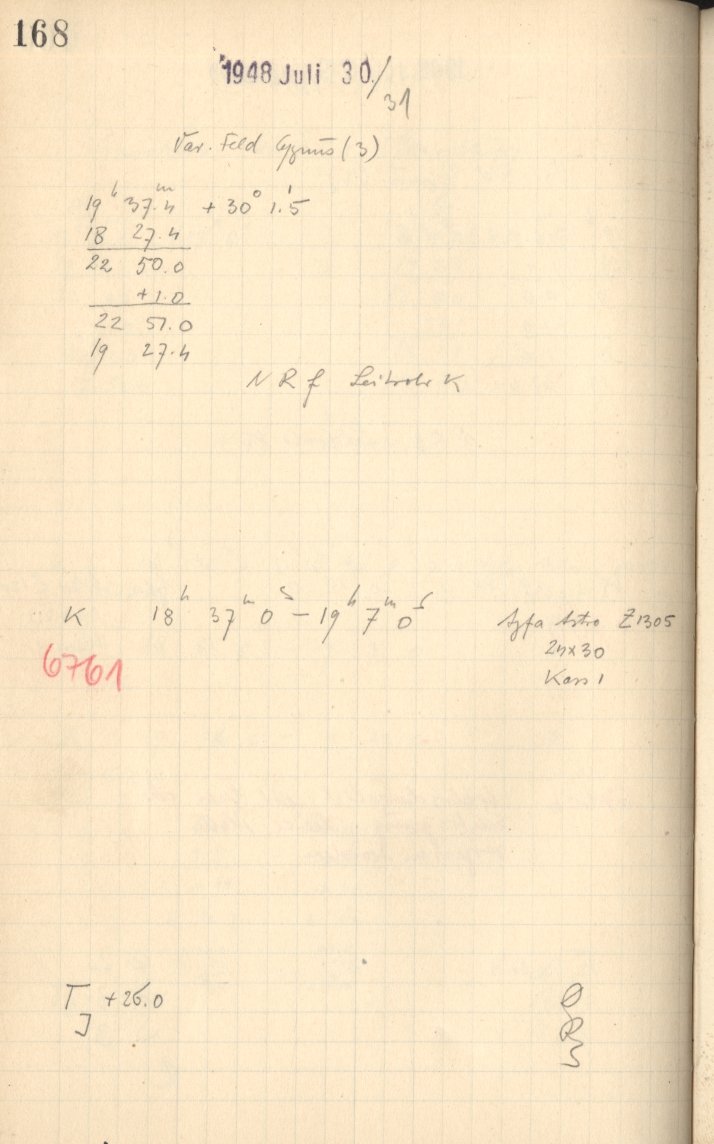 168
1948 Juli 30./31
Var. Feld Cygnus (3)
19h 37m.4 + 30° 1'.5
18 27.4
22 50.0
+1.0
22 51.0
19 27.4
N R f Leitrohr K
K 18h 37m 0s – 19h 7m 0s
Agfa Astro Z1305
6761
24x30
Kass 1
T +26.0
J